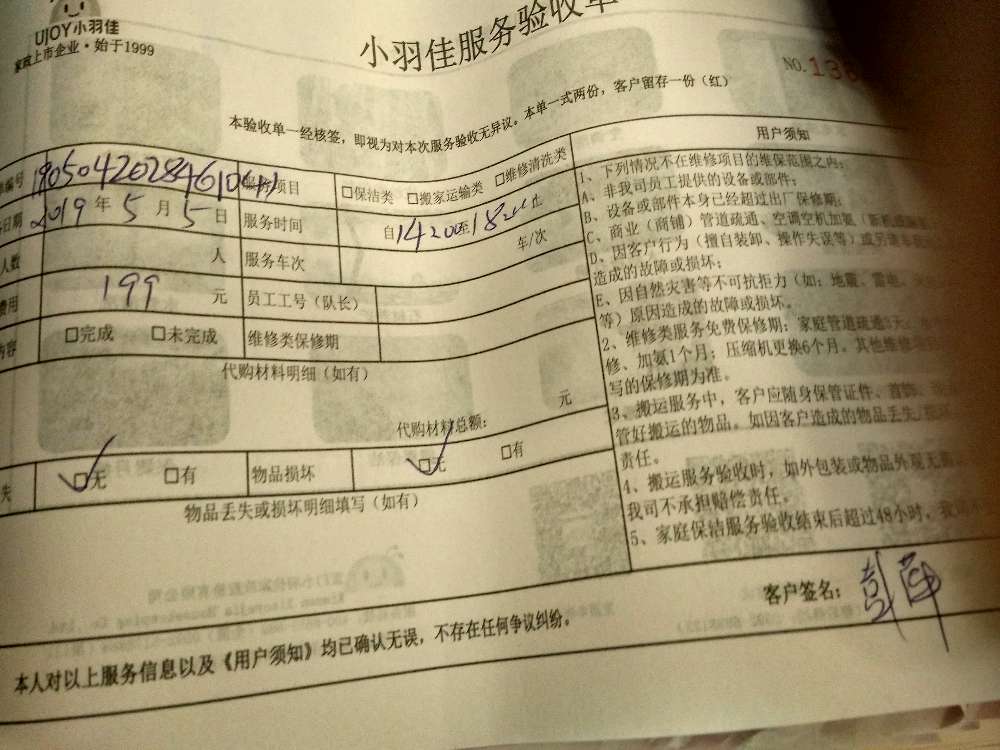 UJOY小羽佳
家政上市企业·始于1999
小羽佳服务验收单
NO.136
本验收单一经核签，即视为对本次服务验收无异议。本单一式两份，客户留存一份（红）
编号 服务项目 □保洁类 □搬家运输类 □维修清洗类
日期 2019年5月5日 服务时间 自1420至18 止
人数 人 服务车次 车/次
费用 199 元 员工工号（队长）
内容 □完成 □未完成 维修类保修期
代购材料明细（如有）
元
代购材料总额：
失 ☑无 □有 物品损坏 ☑无 □有
物品丢失或损坏明细填写（如有）
用户须知
1、下列情况不在维修项目的维保范围之内：
A、非我司员工提供的设备或部件；
B、设备或部件本身已经超过出厂保修期；
C、商业（商铺）管道疏通、空调空机加氨（新机
D、因客户行为（擅自装卸、操作失误等）或
造成的故障或损坏；
E、因自然灾害等不可抗拒力（如：地震、雷电、
等）原因造成的故障或损坏。
2、维修类服务免费保修期：家庭管道疏通3天，
修、加氨1个月；压缩机更换6个月。其他维修
写的保修期为准。
3、搬运服务中，客户应随身保管证件、首饰、
管好搬运的物品。如因客户造成的物品丢失/
责任。
4、搬运服务验收时，如外包装或物品外观无
我司不承担赔偿责任。
5、家庭保洁服务验收结束后超过48小时，我司
客户签名：
本人对以上服务信息以及《用户须知》均已确认无误，不存在任何争议纠纷。